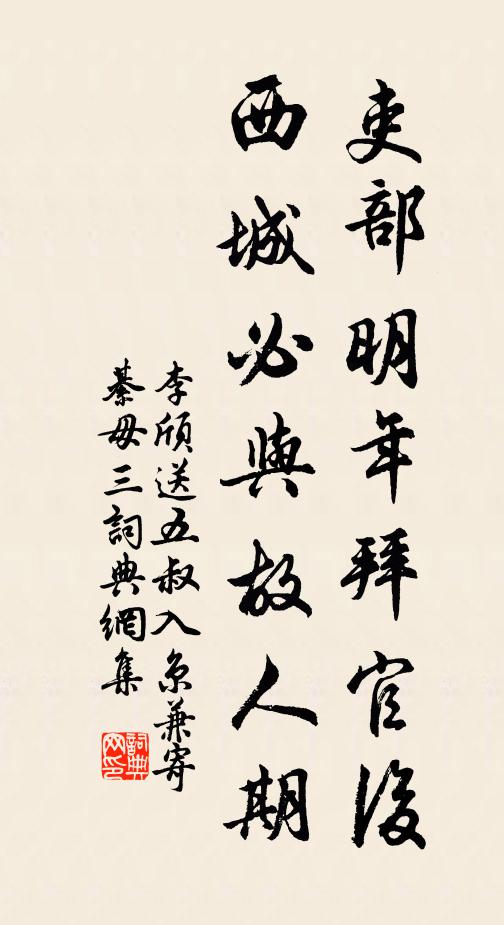 吏部明年拜官後
西城必與故人期
李頎送五叔入京兼寄
綦毋三詞典網集
詞典网印